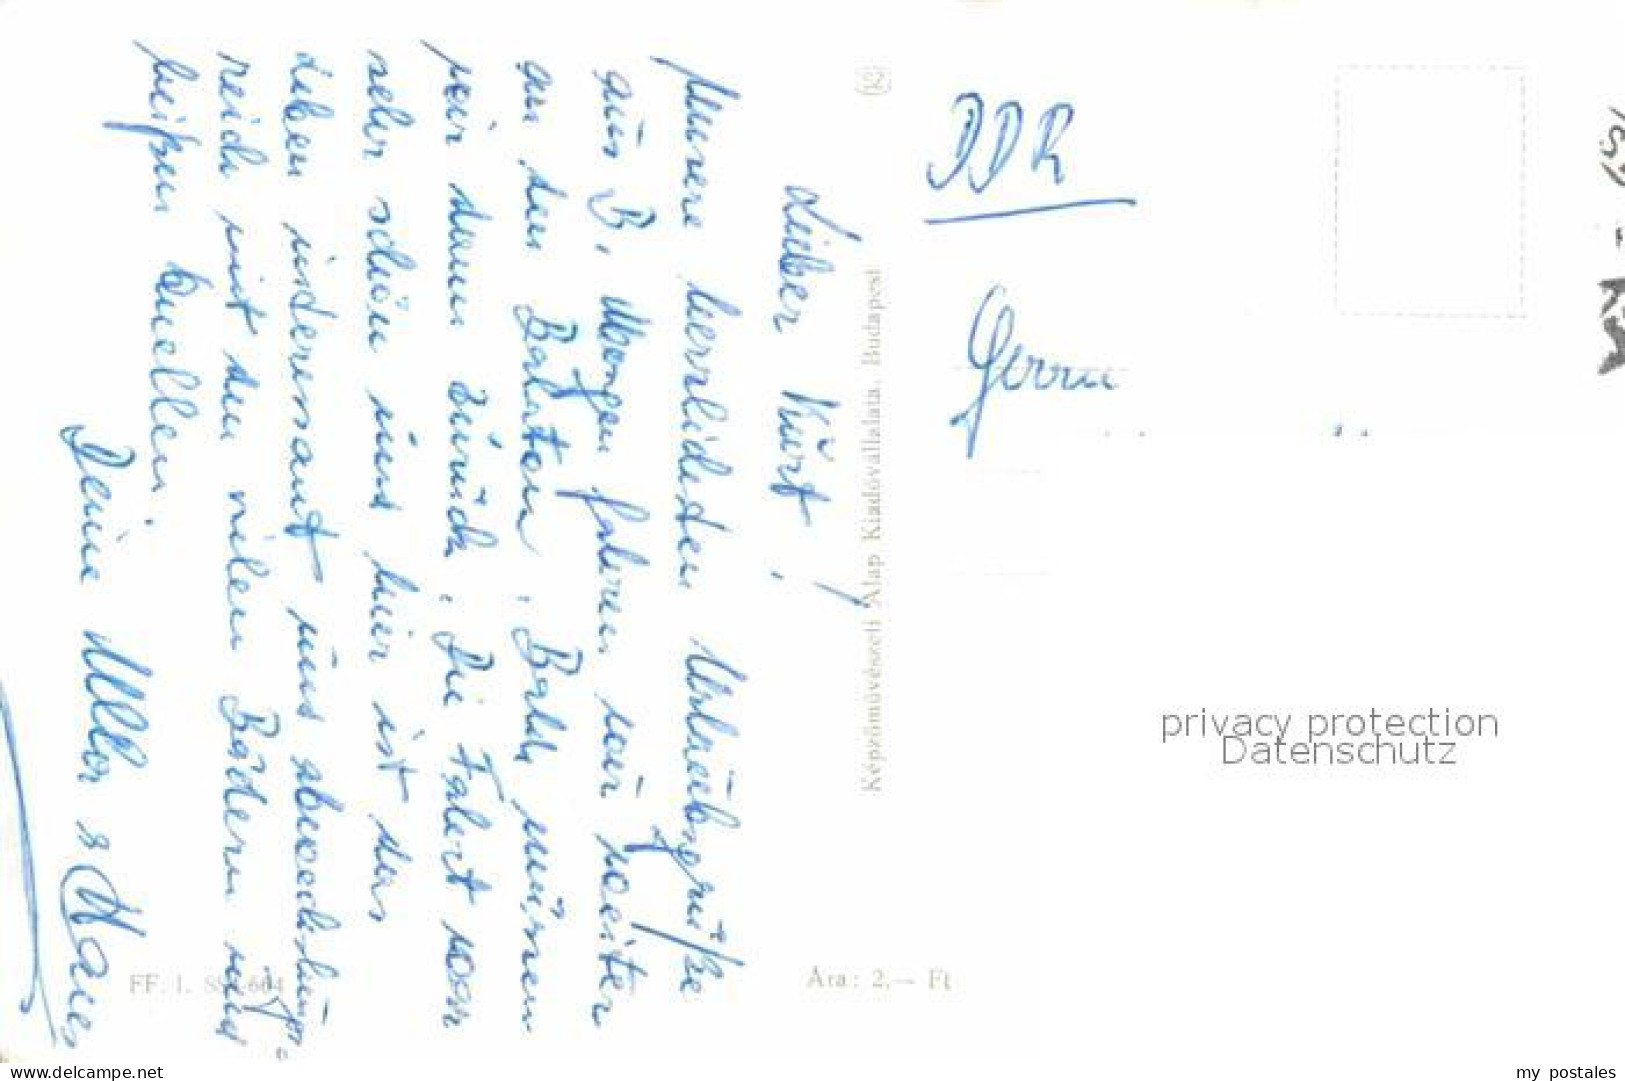 Lieber Kurt!
Unsere herzlichsten Urlaubsgrüße
aus B. Morgen fahren wir weiter
an den Balaton. Bald müssen
wir dann zurück. Die Fahrt war
sehr schön und hier ist das
Leben interessant und abwechslungs-
reich mit den vielen Bädern und
heißen Quellen.
Deine Ulla & Klaus
Képzőművészeti Alap Kiadóvállalata, Budapest
FF. 1. 664
Ára: 2,— Ft
DDR
Herrn
privacy protection
Datenschutz
www.oldthing.de
my_postales